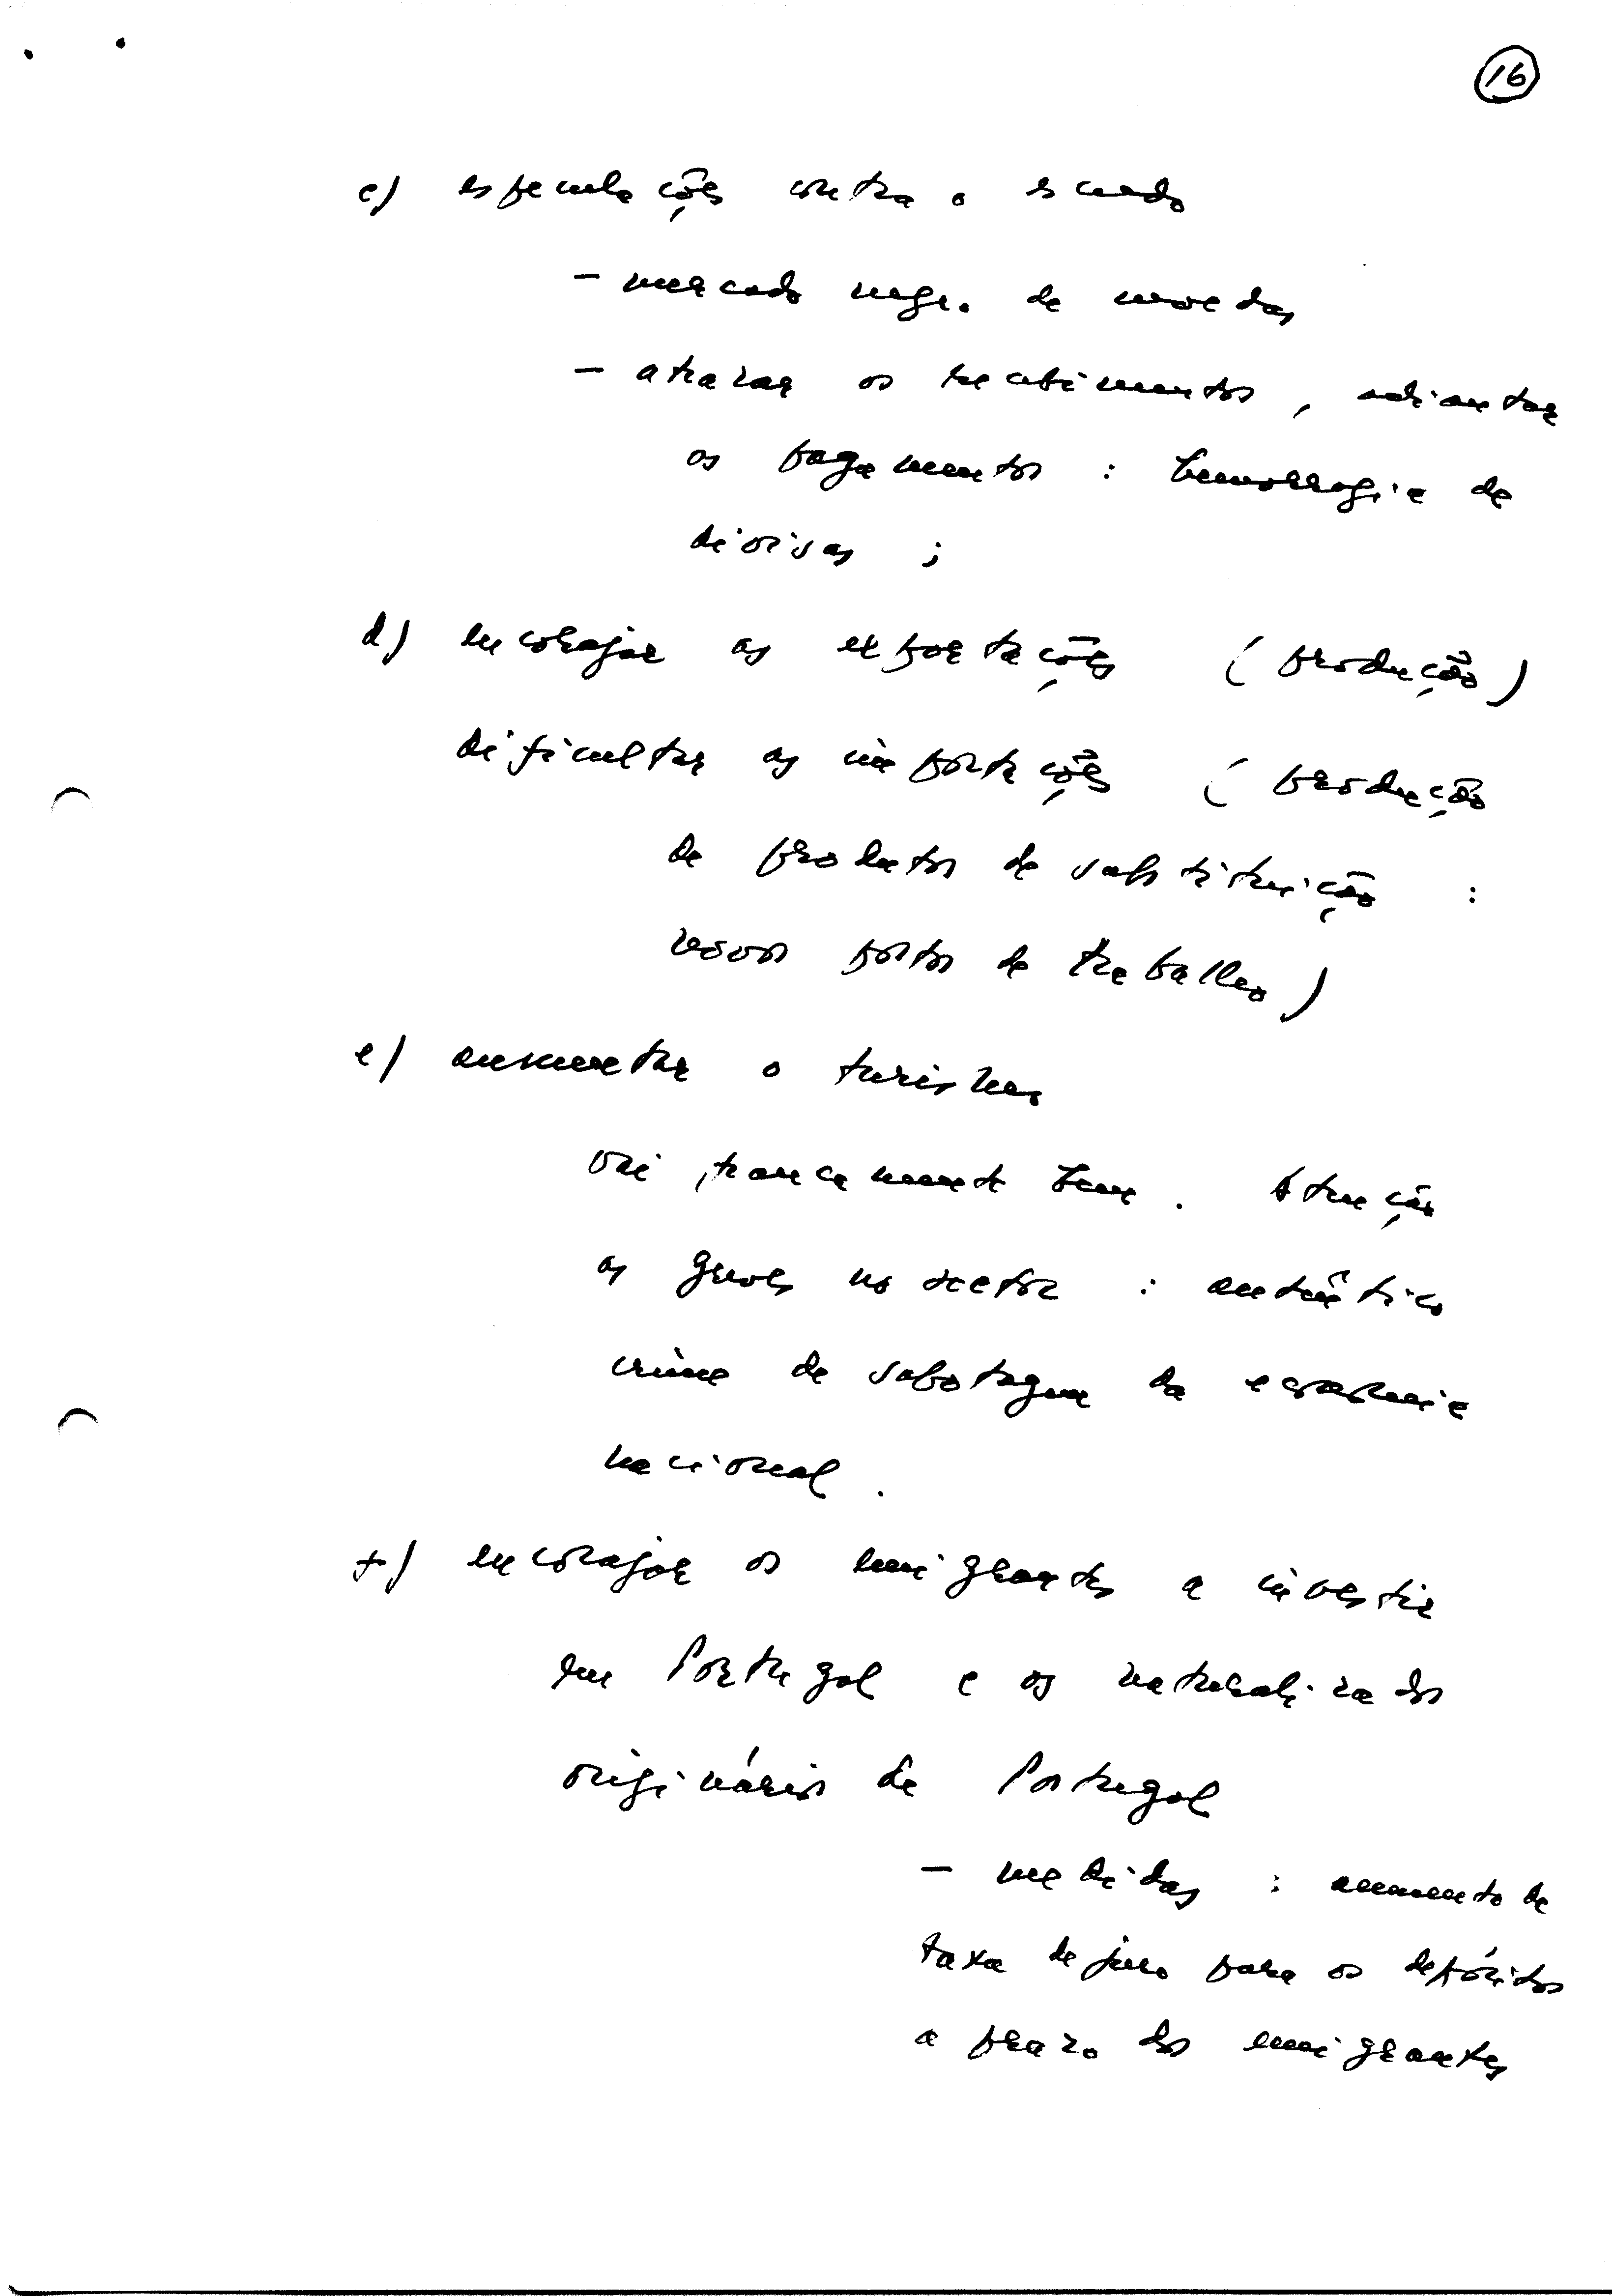 16
c) especulações contra o escudo
- mercado negro de moedas
- atrazar os recebimentos, adiantar
os pagamentos : hemorragia de
divisas ;
d) encorajar as exportações (produção)
dificultar as importações (produção
de produtos de substituição :
novos postos de trabalho)
e) aumentar o turismo
vai francamente bem. Atenção
as greves no sector : autêntico
crime de sabotagem da economia
nacional.
f) encorajar os emigrantes a investir
em Portugal e os naturalizados
originários de Portugal
- medidas : aumento de
taxa de juro para os depósitos
a prazo dos emigrantes